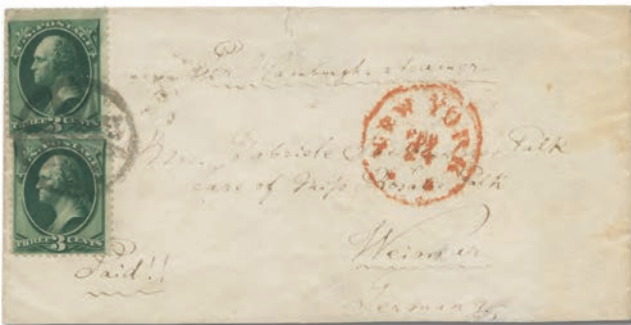 U.S. POSTAGE
THREE 3 CENTS
U.S. POSTAGE
THREE 3 CENTS
Pr. Hamburgh steamer
NEW YORK
24
Mrs. Gabriele Falk
care of Miss Rosalie Falk
Weimar
Paid!!
Germany